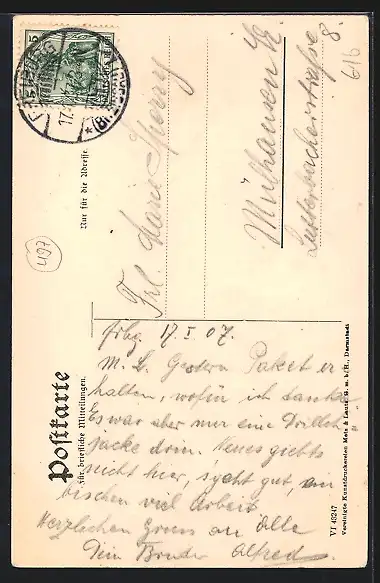 Postkarte
Für briefliche Mitteilungen.
Nur für die Adresse.
Frl. Marie Sperry
Mülhausen i/E
Lutterbacherstrasse
8.
616
497
Frbg. 17 I 07.
M. L. Gestern Paket er
halten, wofür ich danke
Es war aber nur eine Drilch
jacke drin. Neues giebts
nicht hier, s'geht gut, ein
bischen viel Arbeit
Herzlichen Gruss an Alle
Dein Bruder Alfred
VI 48247
Vereinigte Kunstdruckereien Metz & Lautz G. m. b. H., Darmstadt